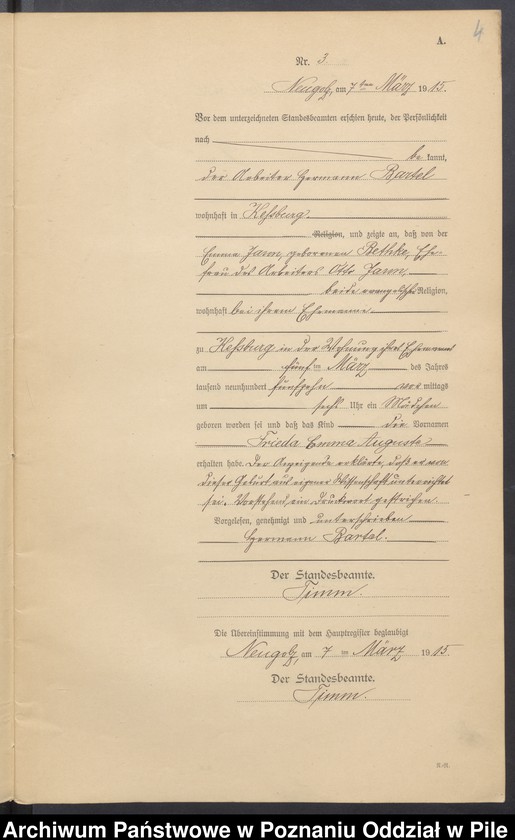 4
A.
Nr. 3.
Neugolz, am 7ten März 1915.
Vor dem unterzeichneten Standesbeamten erschien heute, der Persönlichkeit
nach
be kannt,
der Arbeiter Hermann Bartel
wohnhaft in Keßburg.
Religion, und zeigte an, daß von der
Emma Janm, geborenen Bethke, Ehe-
frau des Arbeiters Otto Janm,
beide evangelischer Religion,
wohnhaft bei ihrem Ehemanne
zu Keßburg in der Wohnung ihres Ehemannes
am fünften März des Jahres
tausend neunhundert fünfzehn vor mittags
um sechs Uhr ein Mädchen
geboren worden sei und daß das Kind die Vornamen
Frieda Emma Auguste
erhalten habe. Der Anzeigende erklärte, daß er von
dieser Geburt aus eigener Wissenschaft unterrichtet
sei. Vorstehend ein Druckwort gestrichen.
Vorgelesen, genehmigt und unterschrieben
Hermann Bartel.
Der Standesbeamte.
Timm.
Die Übereinstimmung mit dem Hauptregister beglaubigt
Neugolz, am 7 ten März 1915.
Der Standesbeamte.
Timm.
Archiwum Państwowe w Poznaniu Oddział w Pile